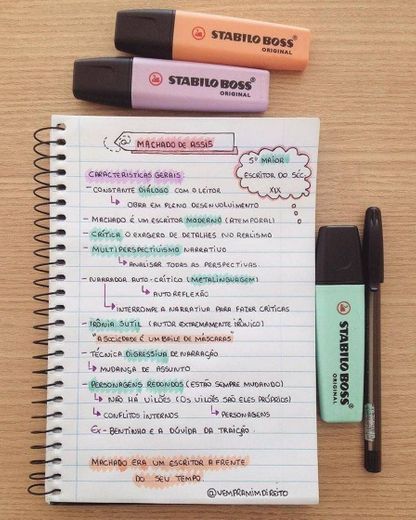 STABILO BOSS
ORIGINAL
STABILO BOSS
ORIGINAL
MACHADO DE ASSIS
5º MAIOR
ESCRITOR DO SÉC
XIX
CARACTERÍSTICAS GERAIS
- CONSTANTE DIÁLOGO COM O LEITOR
↳ OBRA EM PLENO DESENVOLVIMENTO
- MACHADO É UM ESCRITOR MODERNO (ATEMPORAL)
- CRÍTICA O EXAGERO DE DETALHES (NO REALISMO
- MULTIPERSPECTIVISMO NARRATIVO
↳ ANALISAR TODAS AS PERSPECTIVAS.
- NARRADOR AUTO-CRÍTICO (METALINGUAGEM)
↳ AUTO REFLEXÃO
↳ INTERROMPE A NARRATIVA PARA FAZER CRÍTICAS
- IRÔNIA SUTIL (AUTOR EXTREMAMENTE IRÔNICO)
"A SOCIEDADE É UM BAILE DE MÁSCARAS"
- TÉCNICA DIGRESSIVA DE NARRAÇÃO
↳ MUDANÇA DE ASSUNTO
- PERSONAGENS REDONDOS (ESTÃO SEMPRE MUDANDO)
↳ NÃO HÁ VILÕES (OS VILÕES SÃO ELES PRÓPRIOS)
↳ CONFLITOS INTERNOS ↳ PERSONAGENS
EX - BENTINHO E A DÚVIDA DA TRAIÇÃO.
MACHADO ERA UM ESCRITOR A FRENTE
DO SEU TEMPO.
@VEMPRAMIMDIREITO
STABILO BOSS
ORIGINAL